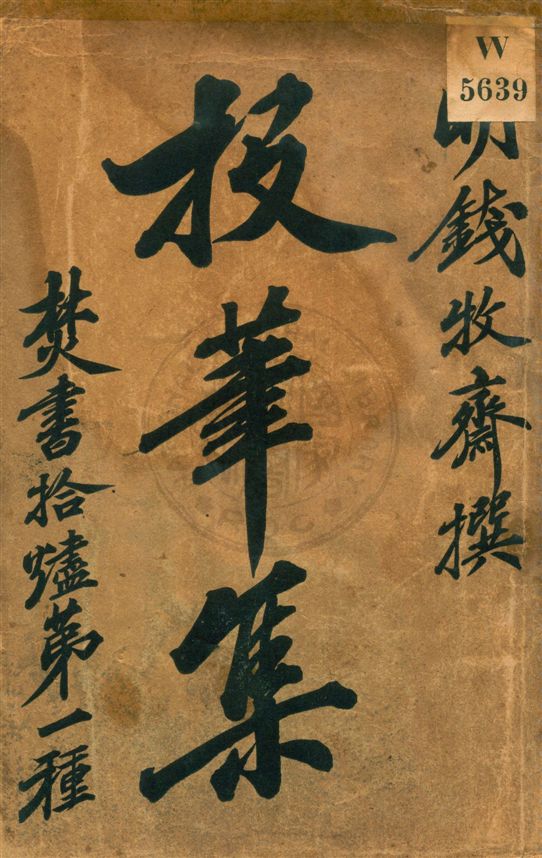 W
5639
明錢牧齋撰
投筆集
焚書拾燼第一種